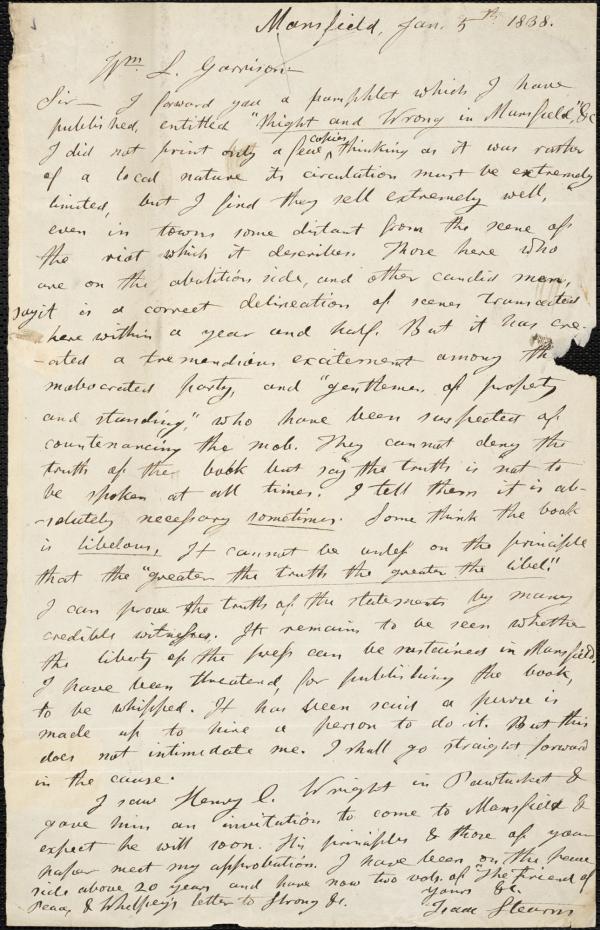 Mansfield, Jan. 5th 1838.
Wm L. Garrison
Sir— I forward you a pamphlet which I have
published, entitled "Right and Wrong in Mansfield," &c
I did not print only a few copies, thinking as it was rather
of a local nature its circulation must be extremely
limited, but I find they sell extremely well,
even in towns some distant from the scene of
the riot which it describes. Those here who
are on the abolition side, and other candid men,
say it is a correct delineation of scenes transacted
here within a year and half. But it has cre-
-ated a tremendious excitement among the
mobocrated party, and "gentlemen of property
and standing," who have been suspected of
countenancing the mob. They cannot deny the
truth of the book but say "the truth is not to
be spoken at all times." I tell them it is ab-
-solutely necessary sometimes. Some think the book
is libelous, It cannot be unless on the principle
that the "greater the truth the greater the libel."
I can prove the truth of the statements by many
credible witnesses. It remains to be seen whether
the liberty of the press can be sustained in Mansfield,
I have been threatend, for publishing the book,
to be whipped. It has been said a purse is
made up to hire a person to do it. But this
does not intimidate me. I shall go straight forward
in the cause.
I saw Henry C. Wright in Pawtucket &
gave him an invitation to come to Mansfield &
expect he will soon. His principles & those of your
paper meet my approbation. I have been on the peace
side above 20 years and have now two vols. of "The Friend of
Peace, & Whelpley's letter to Strong &c.
Yours &c.
Isaac Stearns